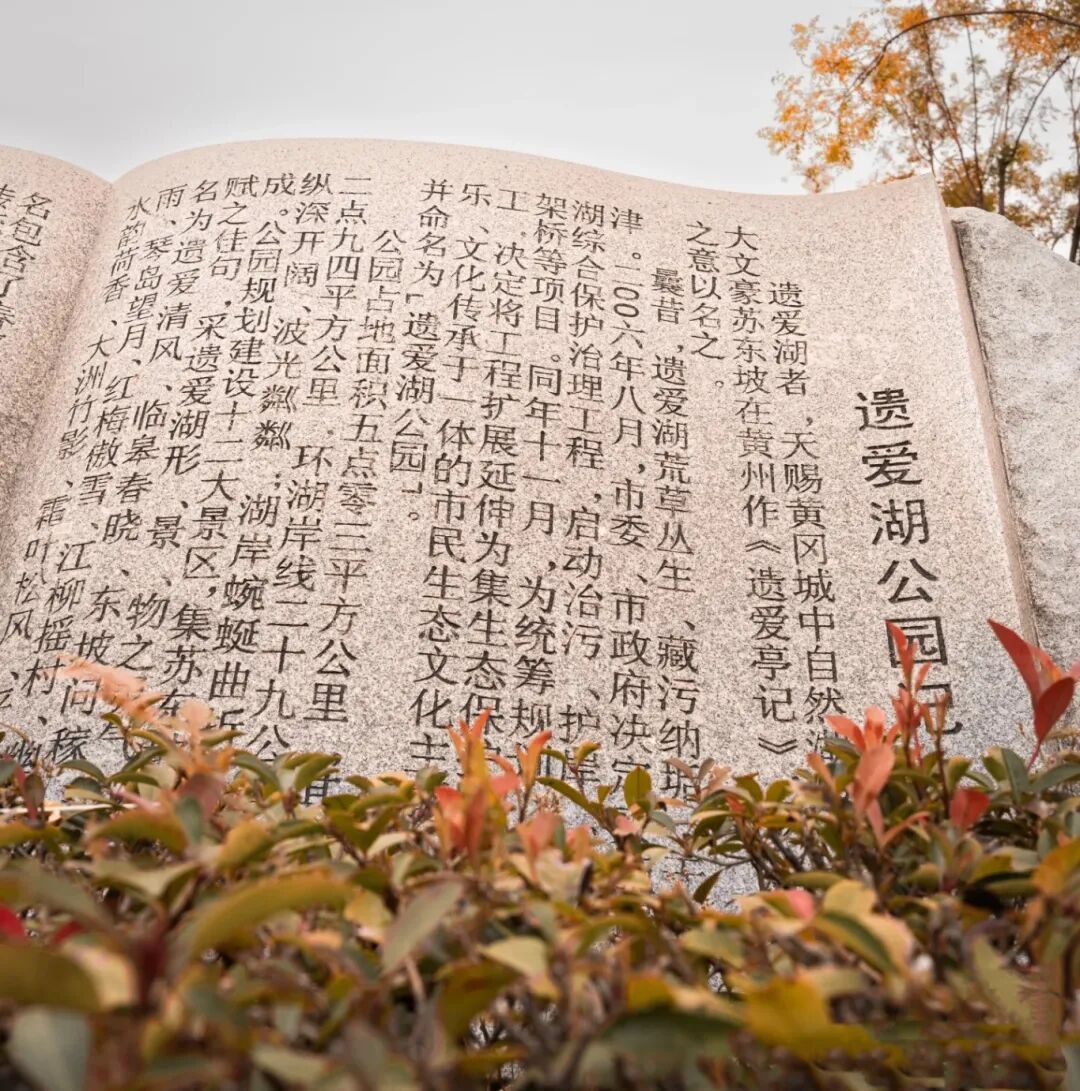 遗爱湖公园记
遗爱湖者，天赐黄冈城中自然
大文豪苏东坡在黄州作《遗爱亭记》
之意以名之。
曩昔，遗爱湖荒草丛生、藏污纳垢
津。二00六年八月，市委、市政府决定
湖综合保护治理工程，启动治污、护岸
架桥等项目。同年十一月，为统筹规
工，决定将工程扩展延伸为集生态保
乐、文化传承于一体的市民生态文化主
并命名为“遗爱湖公园”。
公园占地面积五点零三平方公里
二点九四平方公里，环湖岸线二十九公
纵深开阔、波光粼粼；湖岸蜿蜒曲
成。公园规划建设十二大景区，集苏东
赋之佳句，采遗爱湖形、景、物之
名为遗爱清风、临皋春晓、东坡问稼
雨、琴岛望月、红梅傲雪、江柳摇村、
水韵荷香、大洲竹影、霜叶松风、
名包含